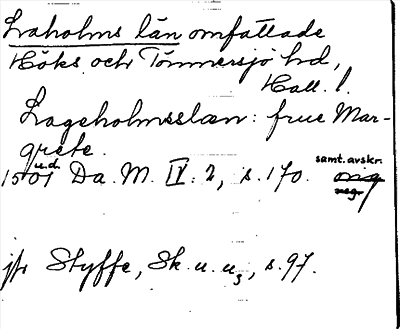 Laholms län omfattade
Höks och Tönnersjö hd,
Hall. l.
Lageholmsslæn: frue Mar-
grete.
u.d.
1501 Da. M. IV: 2, s. 170. samt. avskr.
orig
neg.
jfr Styffe, Sk. u. u3, s. 97.